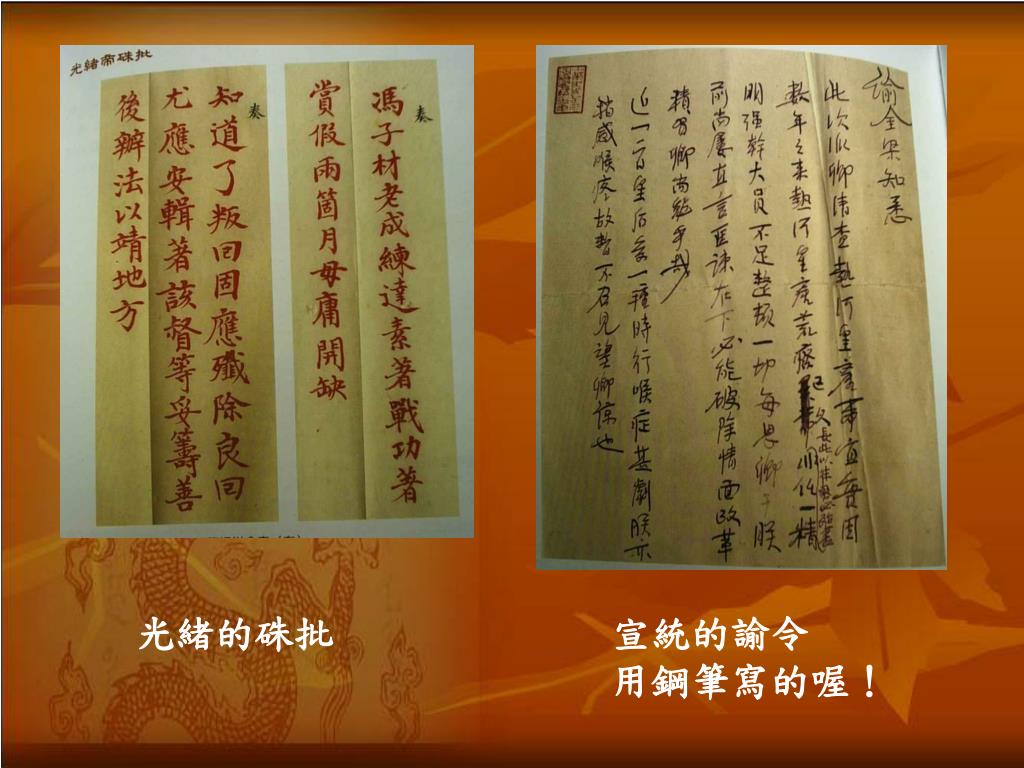 光緒帝硃批
奏
馮子材老成練達素著戰功著
賞假兩箇月毋庸開缺
奏
知道了叛回固應殲除良回
尤應安輯著該督等妥籌善
後辦法以靖地方
諭金梁知悉
此次派卿清查熱河皇產事宜
數年之來熱河皇產荒瘠
明強幹大員不足整頓一切每思卿于朕
前尚屢直言匡諫在下必能破除情面改革
積習卿尚能乎哉
近一二日皇后受一種時行喉症甚劇朕亦
稍感喉疼故暫不召見望卿諒也
光緒的硃批
宣統的諭令
用鋼筆寫的喔！